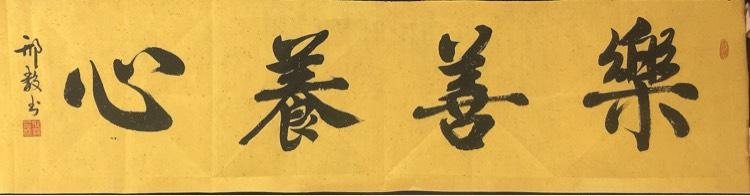 樂善養心
邢毅书